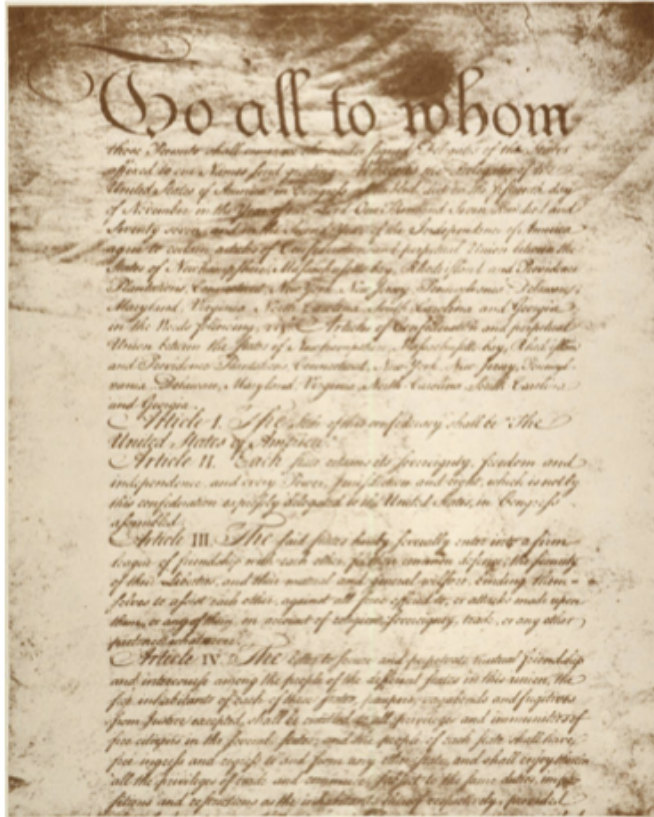 To all to whom
these Presents shall come
United States of America in Congress assembled did on the fifteenth day
of November in the Year of our Lord One Thousand Seven Hundred and
Seventy seven, and in the Second Year of the Independence of America
agree to certain articles of Confederation and perpetual Union between the
States of Newhampshire, Massachusetts-bay, Rhodeisland and Providence
Plantations, Connecticut, New York, New Jersey, Pennsylvania, Delaware,
Maryland, Virginia, North Carolina, South Carolina and Georgia
in the Words following, viz. Articles of Confederation and perpetual
Union between the States of Newhampshire, Massachusetts-bay, Rhodeisland
and Providence Plantations, Connecticut, New York, New Jersey, Pennsyl-
vania, Delaware, Maryland, Virginia, North Carolina, South Carolina
and Georgia.
Article I. The Stile of this confederacy shall be "The
United States of America."
Article II. Each state retains its sovereignty, freedom and
independence, and every Power, Jurisdiction and right, which is not by
this confederation expressly delegated to the United States, in Congress
assembled.
Article III. The said states hereby severally enter into a firm
league of friendship with each other, for their common defence, the security
of their Liberties, and their mutual and general welfare, binding them-
selves to assist each other, against all force offered to, or attacks made upon
them, or any of them, on account of religion, sovereignty, trade, or any other
pretence whatever.
Article IV. The better to secure and perpetuate mutual friendship
and intercourse among the people of the different states in this union, the
free inhabitants of each of these states, paupers, vagabonds and fugitives
from Justice excepted, shall be entitled to all privileges and immunities of
free citizens in the several states; and the people of each state shall have
free ingress and regress to and from any other state, and shall enjoy therein
all the privileges of trade and commerce, subject to the same duties, impo-
sitions and restrictions as the inhabitants thereof respectively, provided